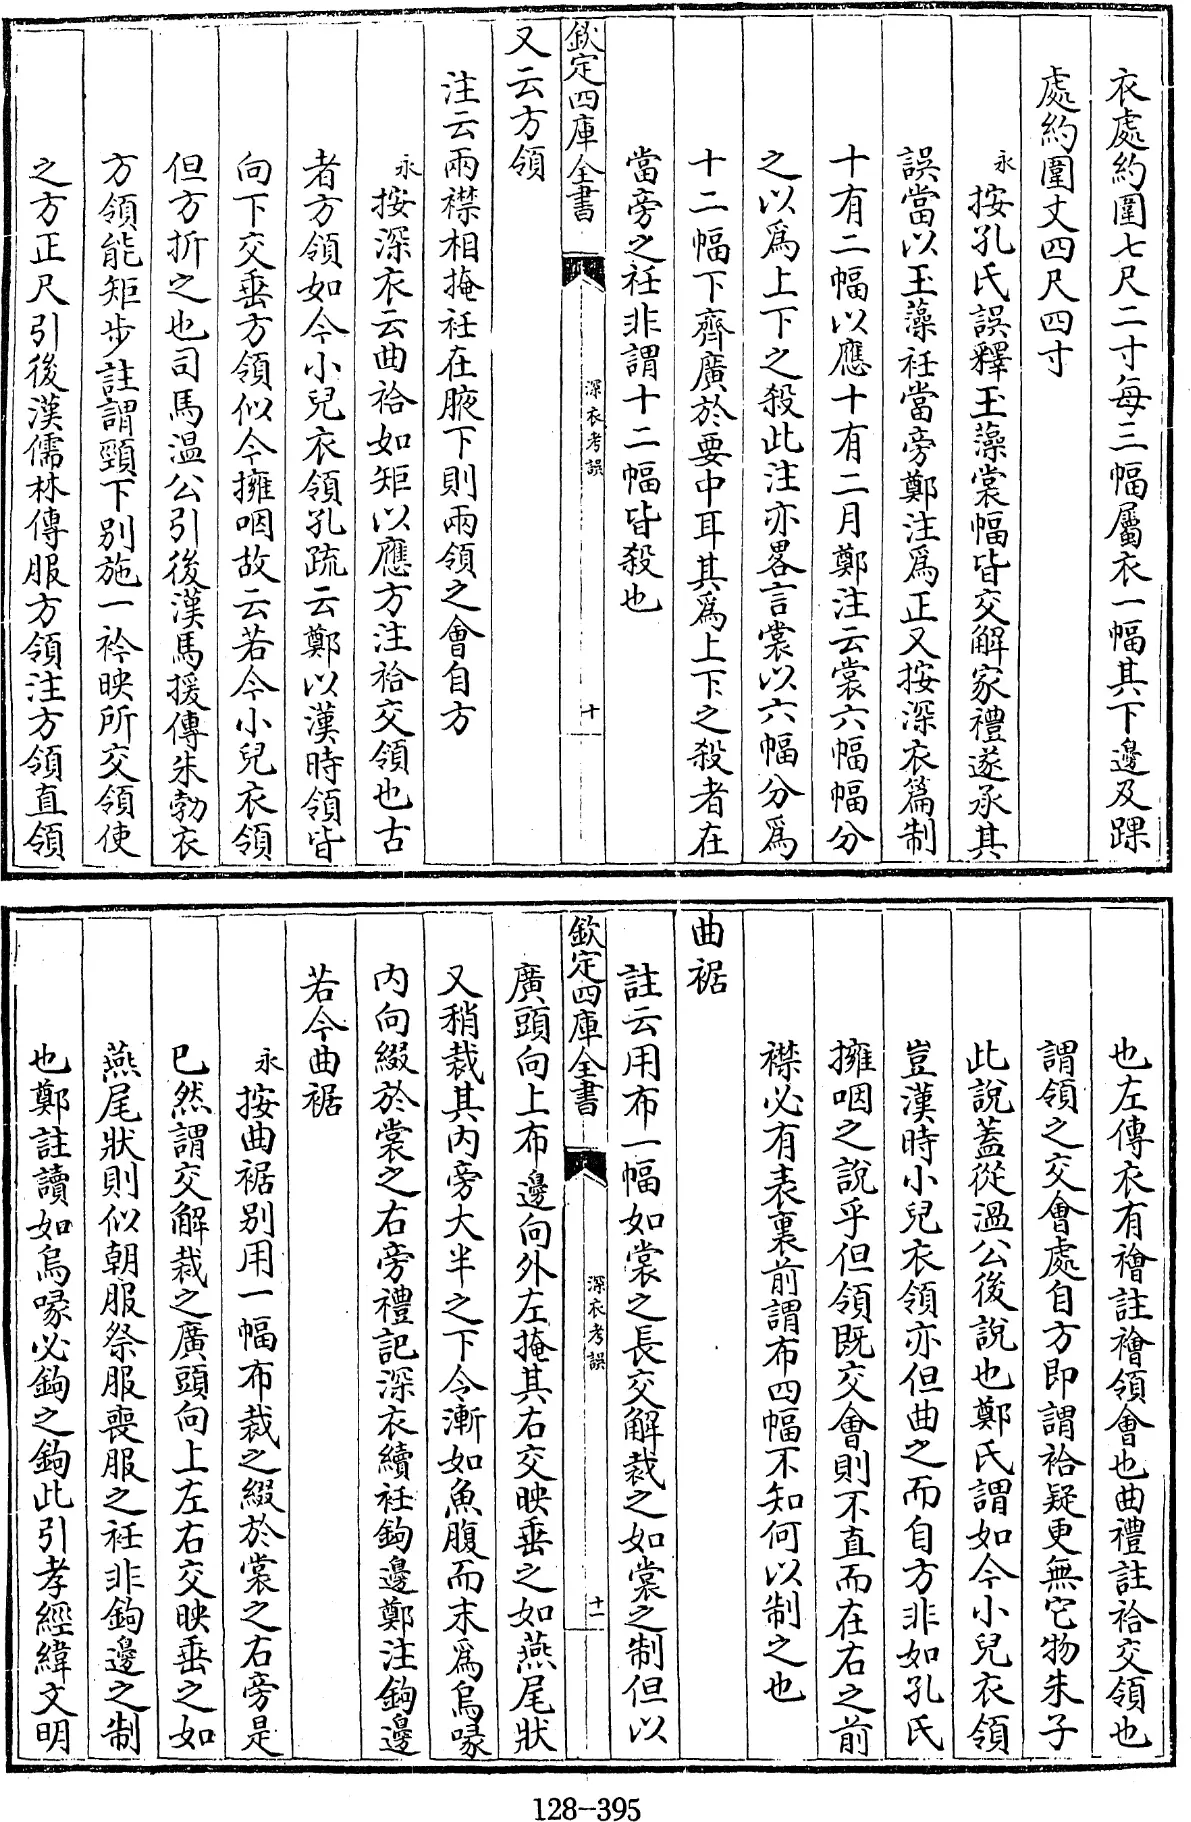 衣處約圍七尺二寸每三幅屬衣一幅其下邊及踝
處約圍丈四尺四寸
永按孔氏誤釋玉藻裳幅皆交解家禮遂承其
誤當以玉藻衽當旁鄭注爲正又按深衣篇制
十有二幅以應十有二月鄭注云裳六幅幅分
之以爲上下之殺此注亦畧言裳以六幅分爲
十二幅下齊廣於要中耳其爲上下之殺者在
當旁之衽非謂十二幅皆殺也
欽定四庫全書
深衣考誤
十
又云方領
注云兩襟相掩衽在腋下則兩領之會自方
永按深衣云曲袷如矩以應方注袷交領也古
者方領如今小兒衣領孔疏云鄭以漢時領皆
向下交垂方領似今擁咽故云若今小兒衣領
但方折之也司馬溫公引後漢馬援傳朱勃衣
方領能矩步註謂頸下別施一衿映所交領使
之方正尺引後漢儒林傳服方領注方領直領
也左傳衣有襘註襘領會也曲禮註袷交領也
謂領之交會處自方即謂袷疑更無它物朱子
此說蓋從溫公後說也鄭氏謂如今小兒衣領
豈漢時小兒衣領亦但曲之而自方非如孔氏
擁咽之說乎但領既交會則不直而在右之前
襟必有表裏前謂布四幅不知何以制之也
曲裾
註云用布一幅如裳之長交解裁之如裳之制但以
欽定四庫全書
深衣考誤
十一
廣頭向上布邊向外左掩其右交映垂之如燕尾狀
又稍裁其內旁大半之下令漸如魚腹而末爲烏喙
內向綴於裳之右旁禮記深衣續衽鉤邊鄭注鉤邊
若今曲裾
永按曲裾別用一幅布裁之綴於裳之右旁是
已然謂交解裁之廣頭向上左右交映垂之如
燕尾狀則似朝服祭服喪服之衽非鉤邊之制
也鄭註讀如烏喙必鉤之鉤此引孝經緯文明
128-395